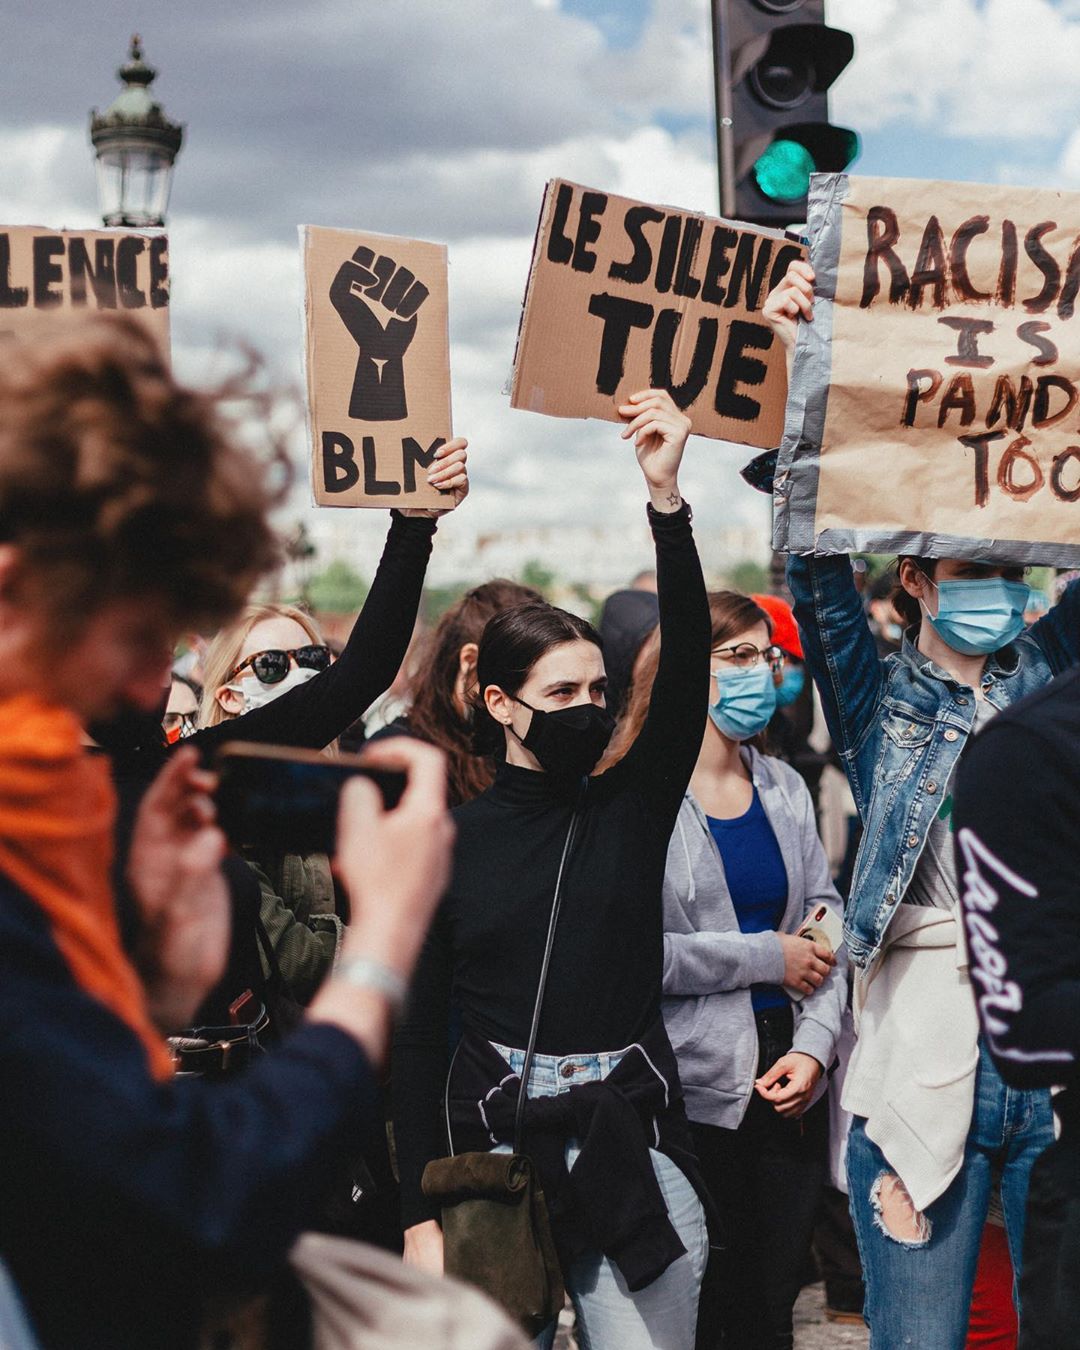 LENCE
BLM
LE SILENC
TUE
RACISM
IS
PAND
TOO